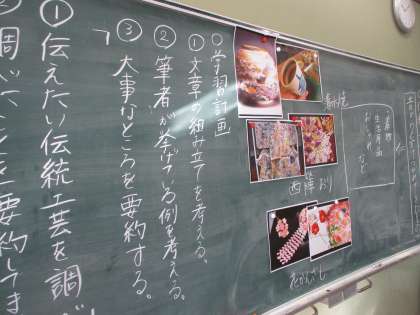 生活用品
など
清水焼
西陣おり
花かんざし
○学習の計画
①文章の組み立てを考える。
②筆者が挙げている例を考える。
③大事なところを要約する。
①伝えたい伝統工芸を調
調べたことを要約してま